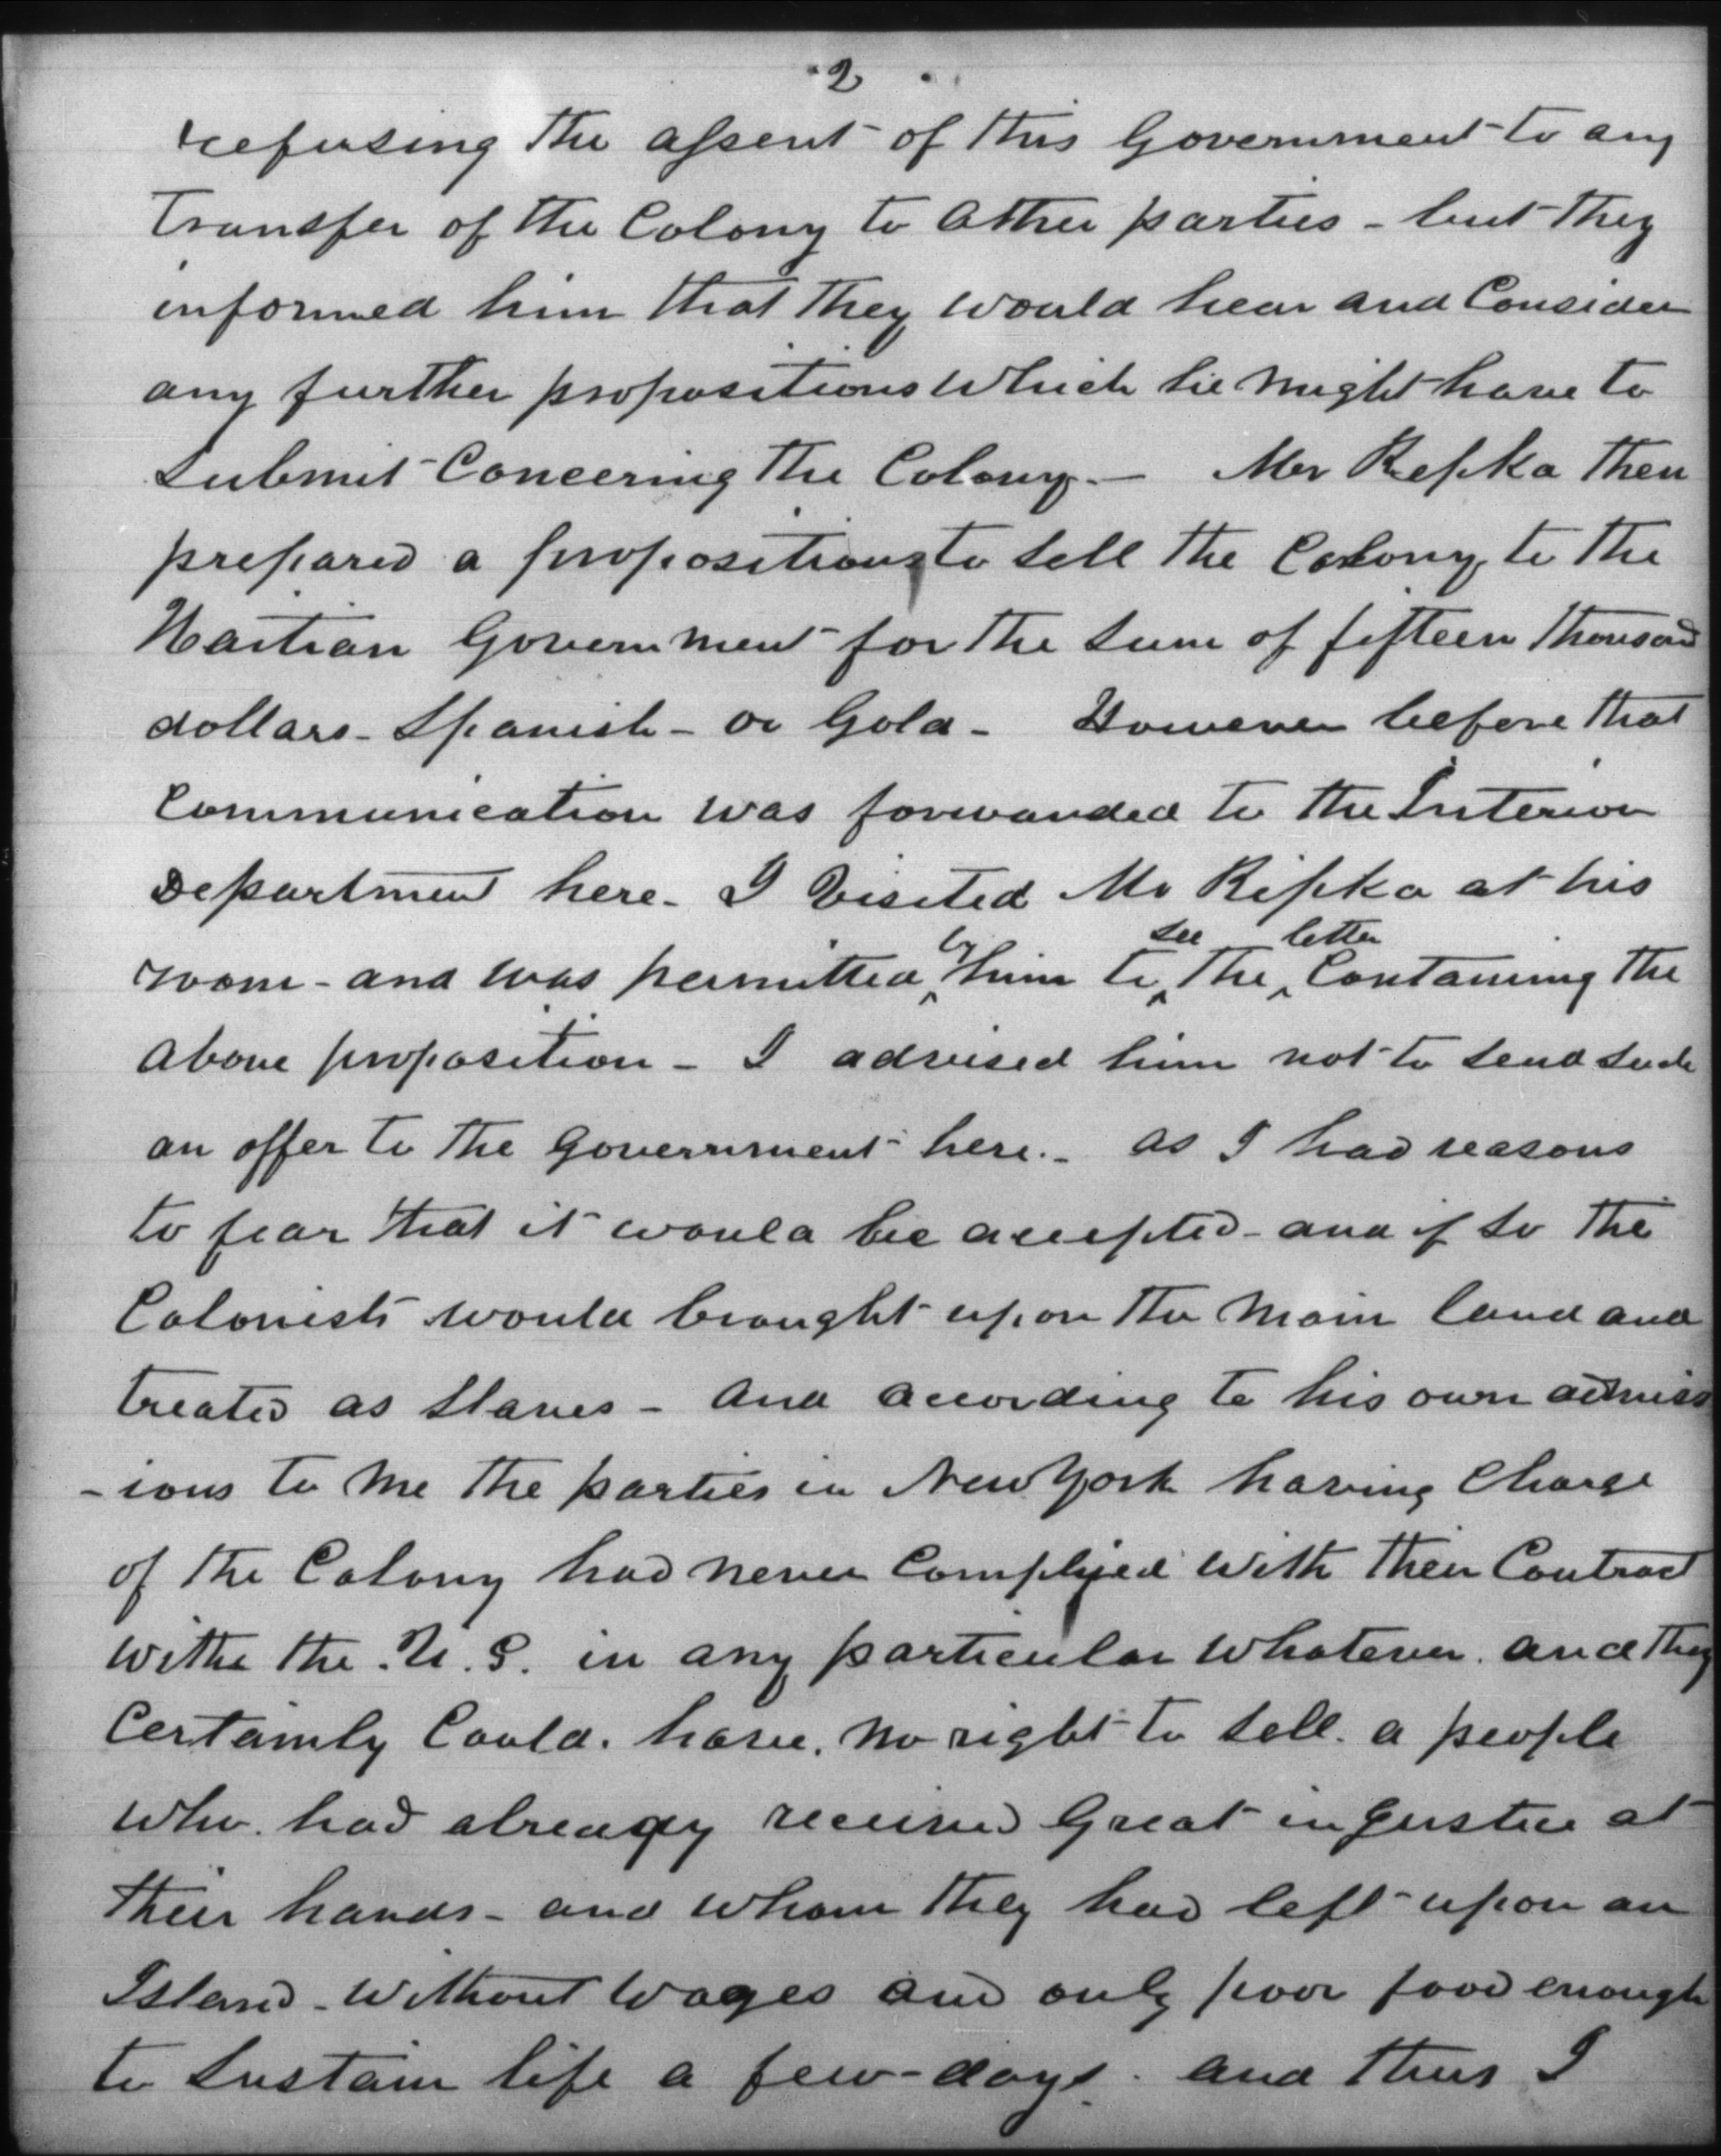 2
refusing the assent of this Government to any
transfer of the Colony to other parties - but they
informed him that they would hear and Consider
any further propositions which he might have to
submit Concering the Colony. — Mr Repka then
prepared a propositions to sell the Colony, to the
Haitian Government for the sum of fifteen thousand
dollars - Spanish - or Gold - However before that
Communication was forwarded to the Interior
Department here. I visited Mr Ripka at his
by see letter
room - and was permitted ‸ him to ‸ the ‸ Containing the
above proposition - I advised him not to send such
an offer to the Government here. - as I had reasons
to fear that it would be accepted - and if so the
Colonists would brought upon the main land and
treated as slaves - and according to his own admiss
-ions to me the parties in New York having Charge
of the Colony had never Complyied with their Contract
withe the U. S. in any particular whatever. and they
Certainly Could. have. no right to sell. a people
who. had already received Great injustice at
their hands - and whom they had left upon an
Island - without wages and only poor food enough
to sustain life a few-days. and thus I